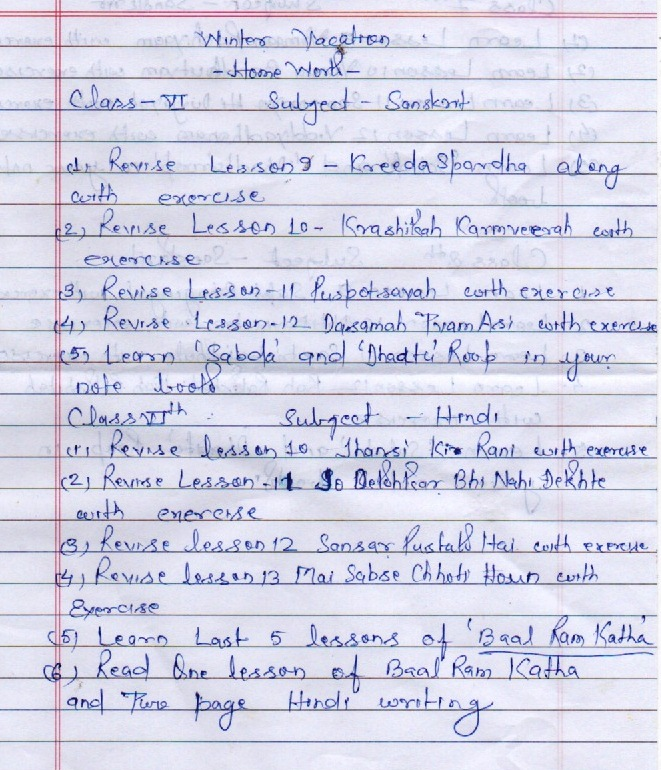 Winter Vacation
- Home Work -
Class - VI Subject - Sanskrit
(1) Revise Lesson 9 - Kreeda Spardha along
with exercise
(2) Revise Lesson 10 - Krashikah Karmveerah with
exercise
(3) Revise Lesson - 11 Puspotsavah with exercise
(4) Revise Lesson - 12 Dasamah Tvam Asi with exercise
(5) Learn 'Sabda' and 'Dhadtu' Roop in your
note book
Class VIth Subject - Hindi
(1) Revise lesson 10 Jhansi Ki Rani with exercise
(2) Revise Lesson - 11 Jo Dekhkar Bhi Nahi Dekhte
with exercise
(3) Revise lesson 12 Sansar Pustak Hai with exercise
(4) Revise lesson 13 Mai Sabse Chhoti Houn with
Exercise
(5) Learn Last 5 lessons of 'Baal Ram Katha'
(6) Read One lesson of Baal Ram Katha
and Two page Hindi writing